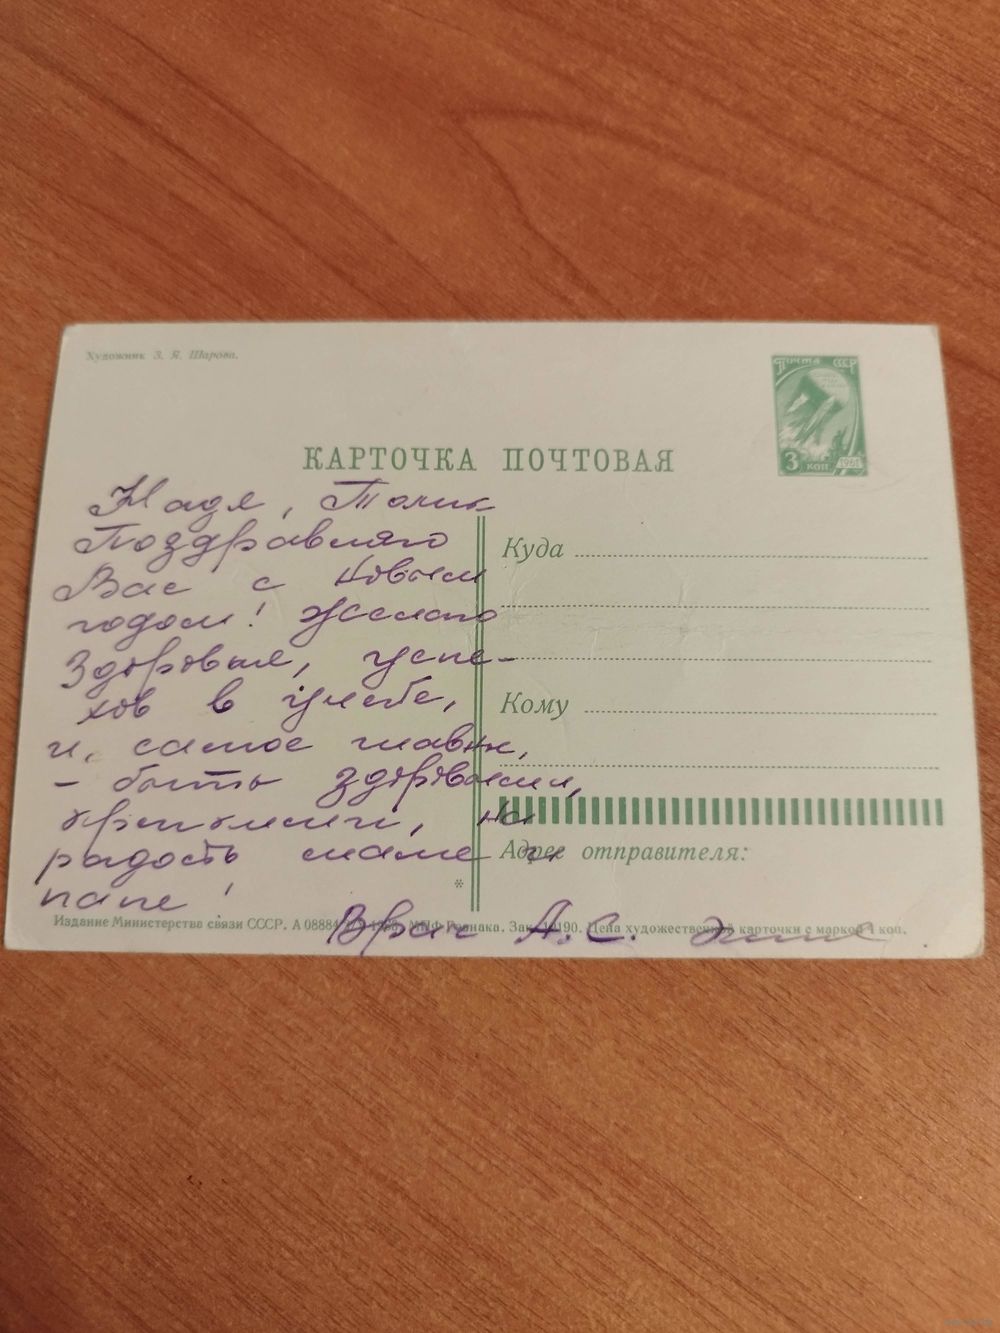 Художник З. Я. Шарова.
Почта СССР
3 коп 1961
КАРТОЧКА ПОЧТОВАЯ
Надя, Толик
Поздравляю
Вас с Новым
годом! Желаю
Здоровья, успе-
хов в учебе,
и, самое главн,
- быть здоровыми,
крепкими, на
радость маме и
папе!
Врач А.С.
Куда
Кому
Адрес отправителя:
*
Издание Министерства связи СССР. А 08884 МПФ Гознака. Зак. 190. Цена художественной карточки с маркой 4 коп.